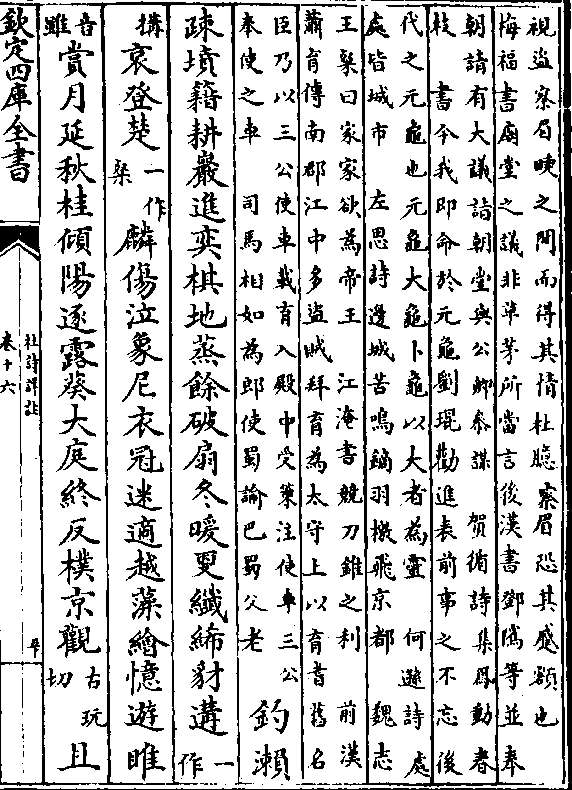 視盜察眉睫之間而得其情杜臆察眉恐其蹙頞也
梅福書廟堂之議非草茅所當言後漢書鄧隲等並奉
朝請有大議詣朝堂與公卿參謀　賀循詩集鳳動春
枝　書今我即命於元龜劉琨勸進表前事之不忘後
代之元龜也元龜大龜卜龜以大者為靈　何遜詩處
處皆城市　左思詩邊城苦鳴鏑羽檄飛京都　魏志
王粲曰家家欲為帝王　江淹書競刀錐之利　前漢
蕭育傳南郡江中多盜賊拜育為太守上以育耆舊名
臣乃以三公使車載育入殿中受策注使車三公
奉使之車　司馬相如為郎使蜀諭巴蜀父老
釣瀨
疎墳籍耕巖進奕棋地蒸餘破扇冬暖更纖絺豺遘一作
搆哀登楚一作粲麟傷泣象尼衣冠迷適越藻繪憶遊睢
音雖賞月延秋桂傾陽逐露葵大庭終反樸京觀古玩切且
欽定四庫全書
杜詩詳註
卷十六